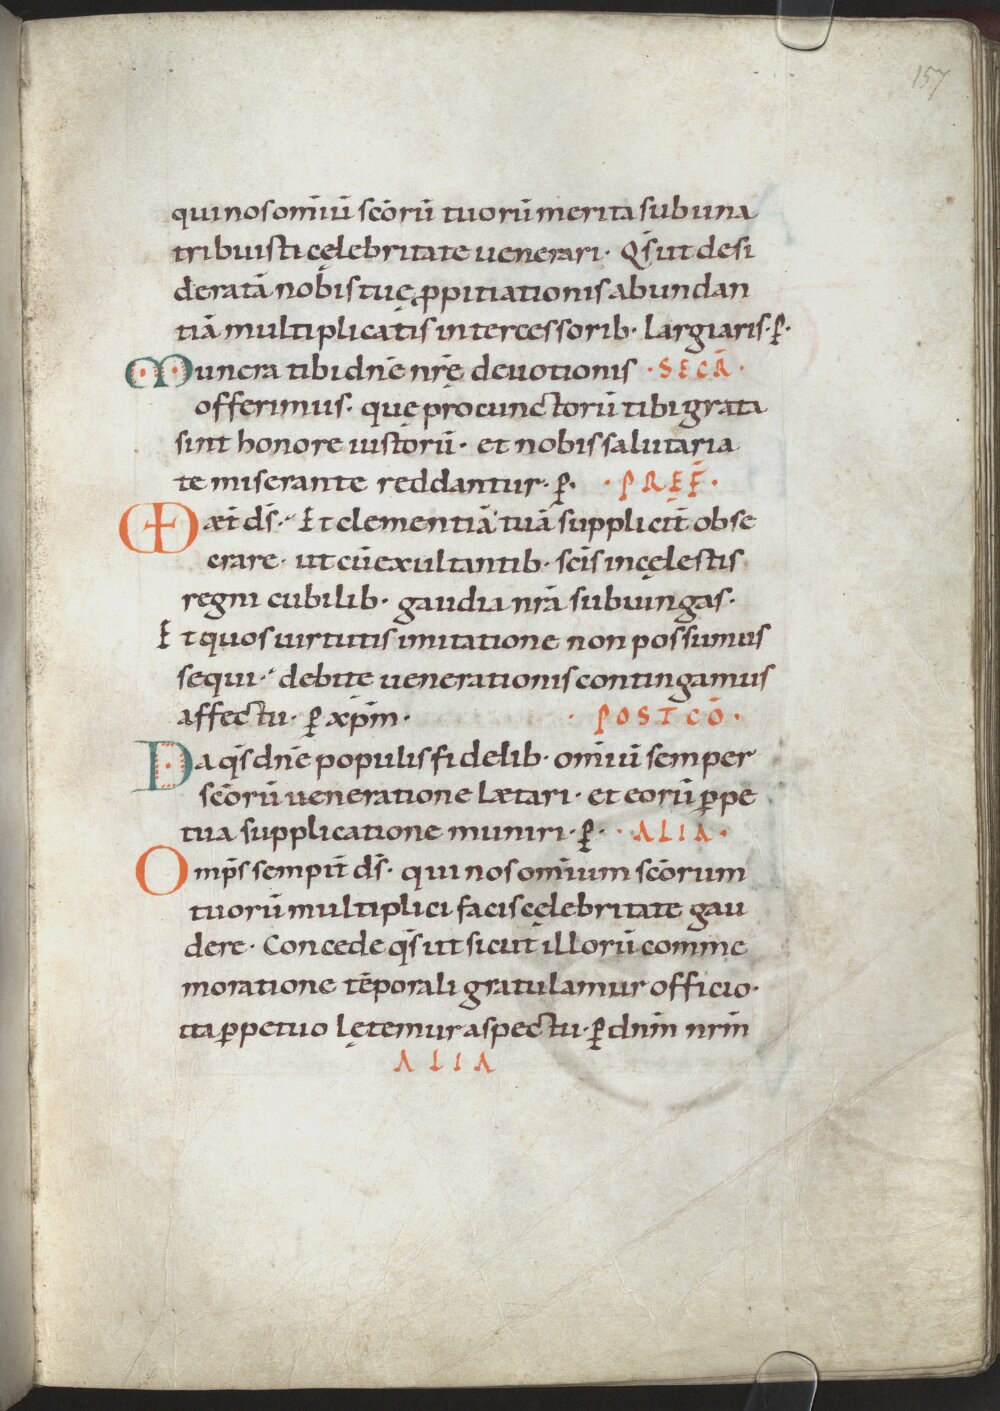 157
qui nos om̄iū sc̄orū tuorū merita sub una
tribuisti cęlebritate uenerari· Qs̄ ut desi
deratā nobis tuę ꝓpitiationis abundan
tiā multiplicatis intercessorib· largiaris· p̄·
Munera tibi dn̄e nr̄ę deuotionis · SECR̄ ·
offerimus· quę pro cunctorū tibi grata
sint honore iustorū· et nobis salutaria
te miserante reddantur· p̄· · PRĘF̄ ·
VD aet̄ ds̄· Et clementiā tuā supplicit̄ obse
crare· ut cū exultantib· sc̄is in cęlestis
regni cubilib· gaudia nr̄a subiungas·
Et quos uirtutis imitatione non possumus
sequi· debite uenerationis contingamus
affectu· p̄ xp̄m· · POSTCŌ ·
Da qs̄ dn̄e populis fidelib· om̄iū semper
sc̄orū ueneratione lætari· et eorū ꝑpe
tua supplicatione muniri· p̄· · ALIA ·
Omp̄s sempit̄ ds̄· qui nos om̄ium sc̄orum
tuorū multiplici facis cęlebritate gau
dere· Concede qs̄ ut sicut illorū comme
moratione tēporali gratulamur officio·
ita ꝑpetuo lętemur aspectu· p̄ dnm̄ nrm̄
ALIA